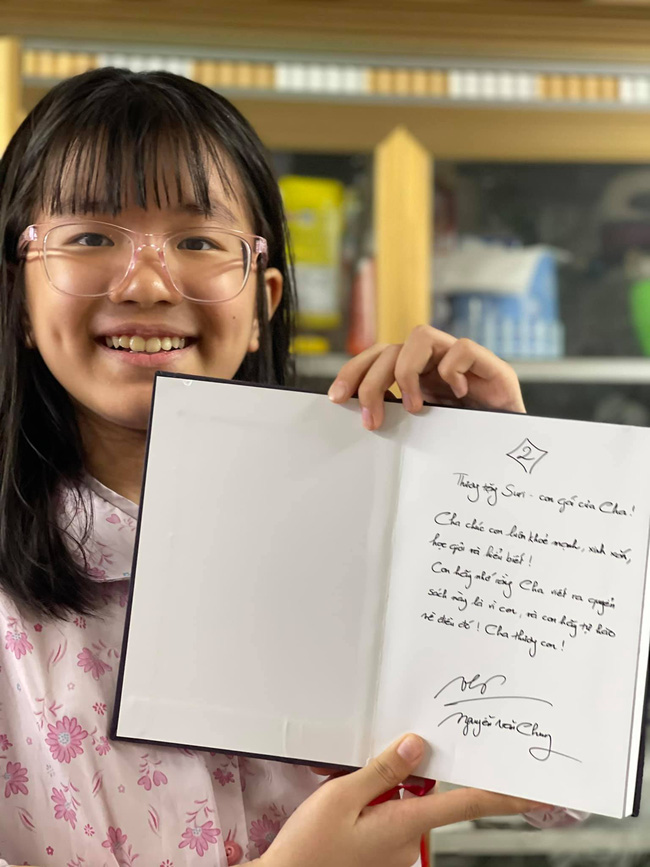 2
Thương tặng Suri - con gái của Cha!
Cha chúc con luôn khoẻ mạnh, xinh xắn,
học giỏi và hiểu biết!
Con hãy nhớ rằng Cha viết ra quyển
sách này là vì con, và con hãy tự hào
về điều đó! Cha thương con!
Nguyễn Văn Chung